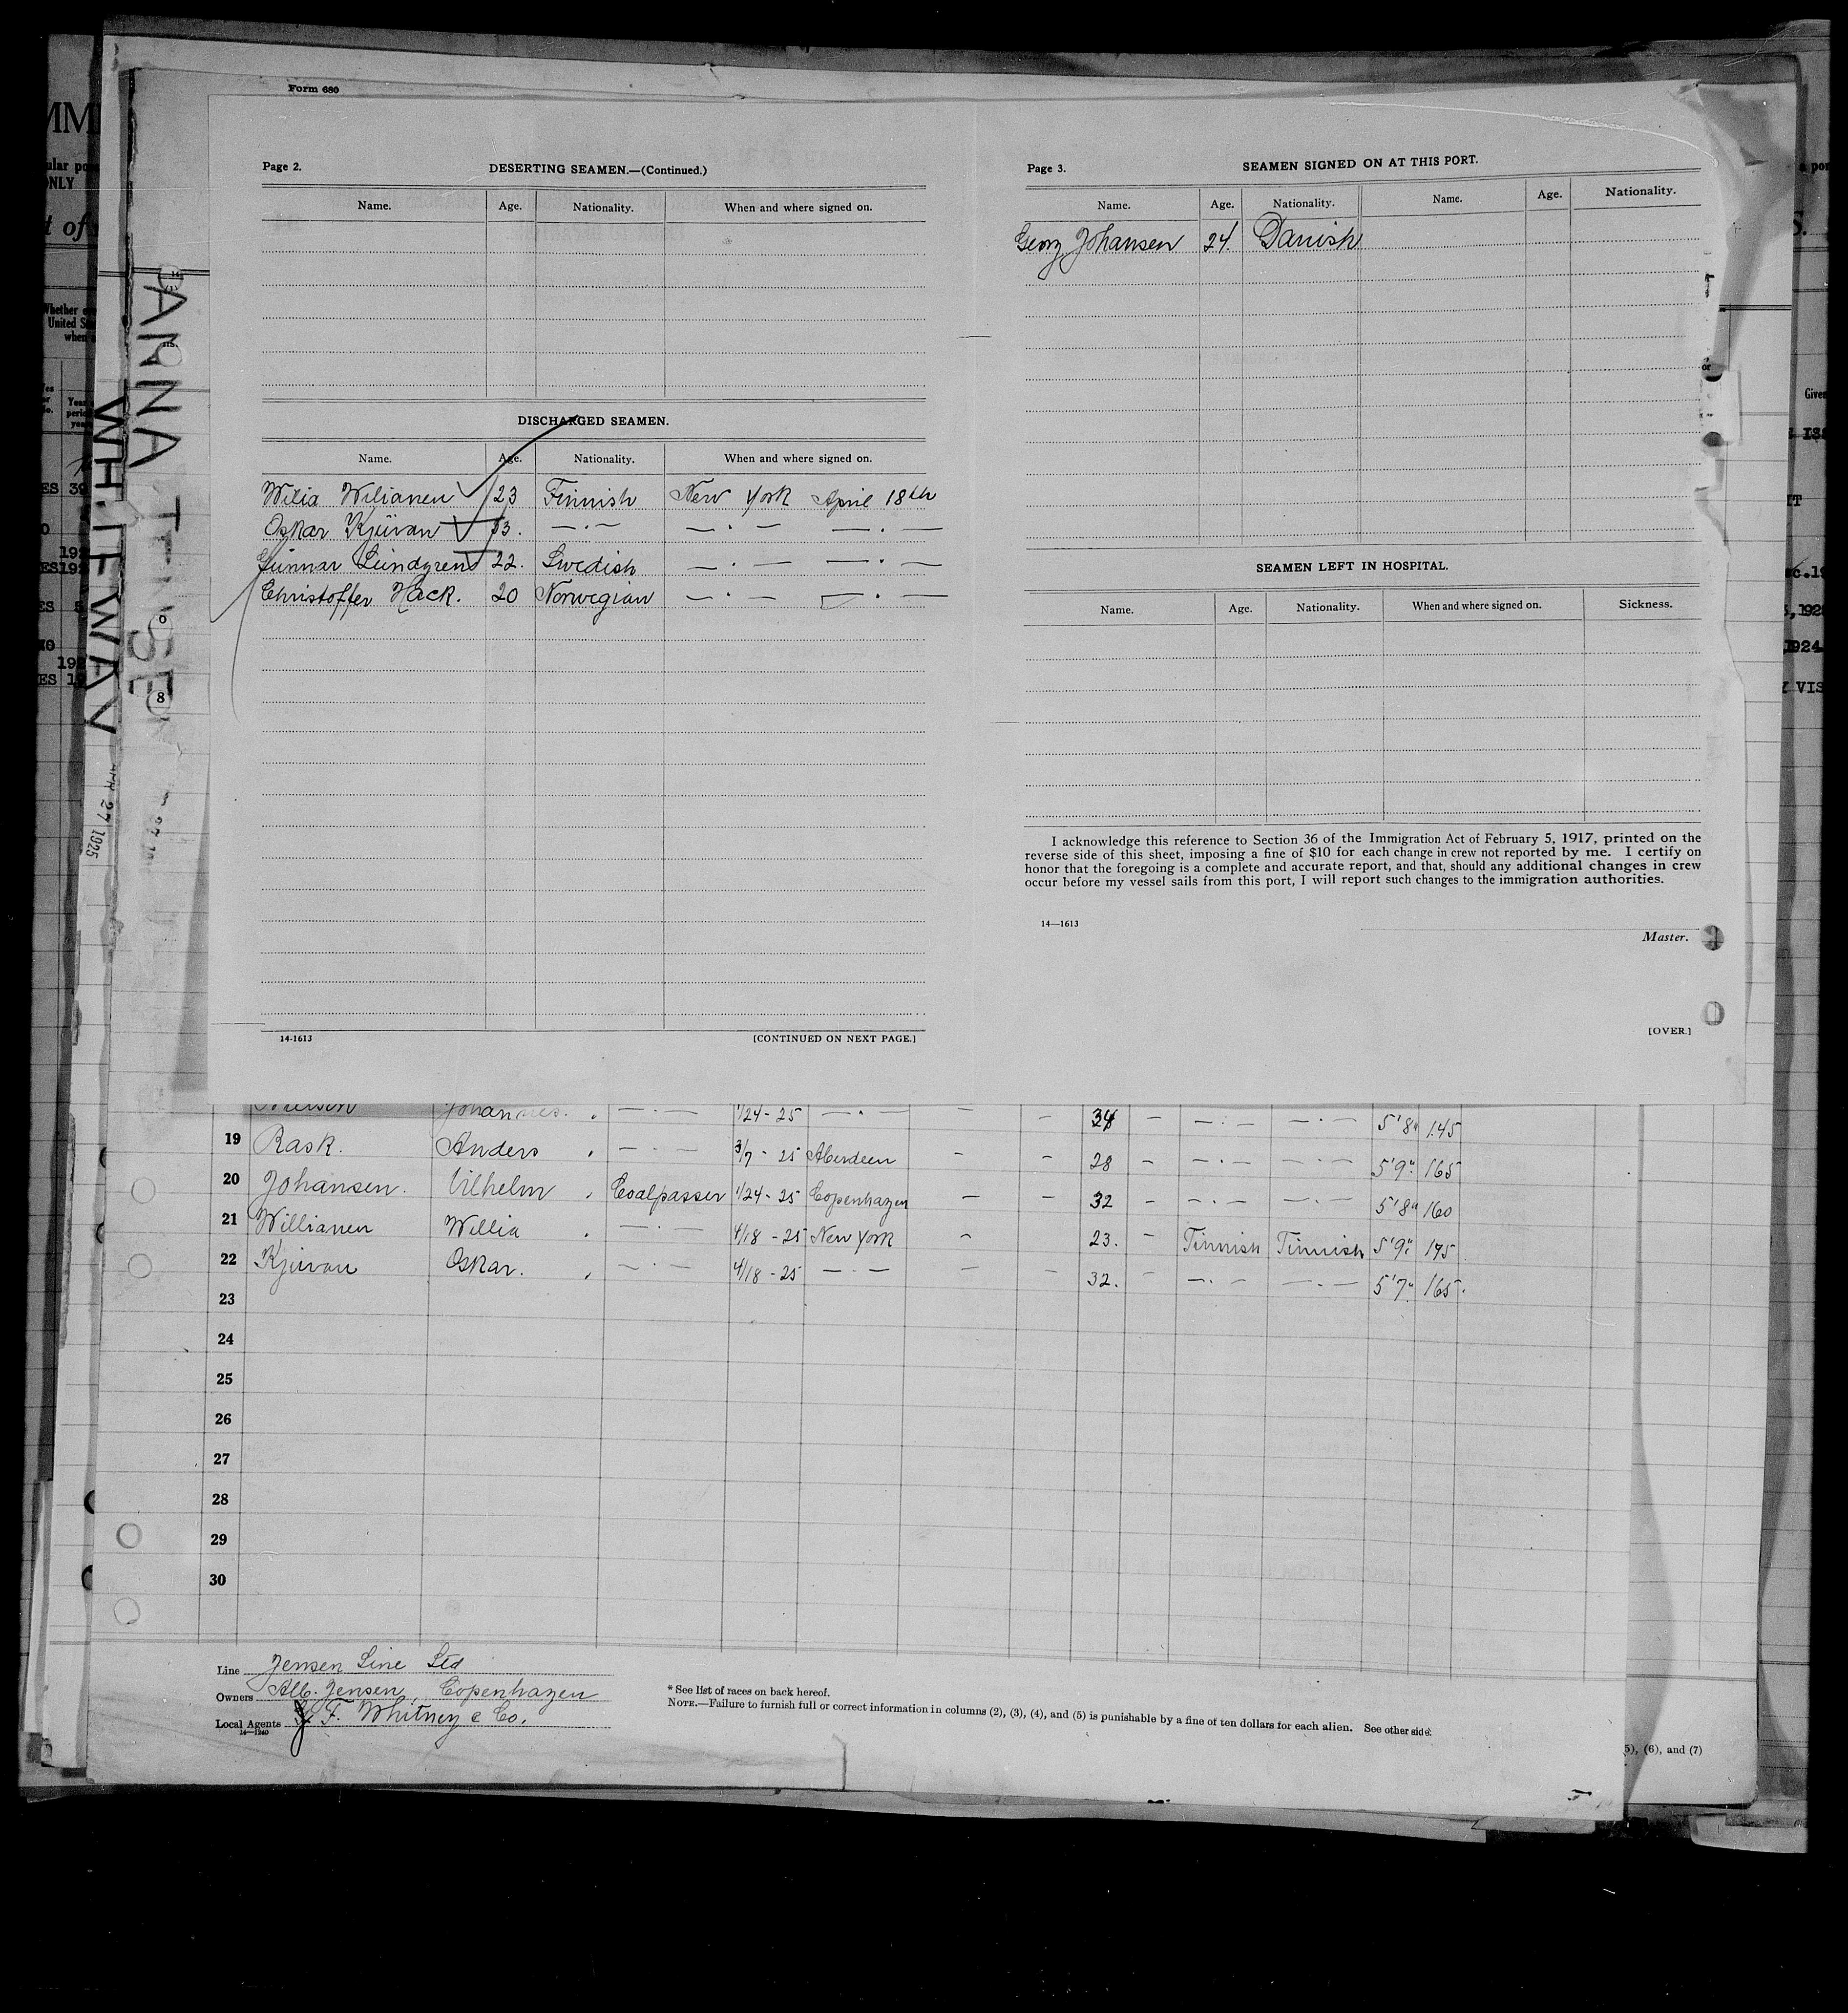 Form 680
Page 2.
DESERTING SEAMEN.—(Continued.)
Name. Age. Nationality. When and where signed on.
DISCHARGED SEAMEN.
Name. Age. Nationality. When and where signed on.
Wilia Wilianen 23 Finnish New York April 18th
Oskar Kjüvan 33. —·— —·— —·—
Gunnar Lindgren 22. Swedish —·— —·—
Christoffer Hack. 20 Norwegian —·— —·—
14-1613
[CONTINUED ON NEXT PAGE.]
Page 3.
SEAMEN SIGNED ON AT THIS PORT.
Name. Age. Nationality. Name. Age. Nationality.
Georg Johansen 24. Danish
SEAMEN LEFT IN HOSPITAL.
Name. Age. Nationality. When and where signed on. Sickness.
I acknowledge this reference to Section 36 of the Immigration Act of February 5, 1917, printed on the
reverse side of this sheet, imposing a fine of $10 for each change in crew not reported by me. I certify on
honor that the foregoing is a complete and accurate report, and that, should any additional changes in crew
occur before my vessel sails from this port, I will report such changes to the immigration authorities.
14—1613
Master.
[OVER.]
WHITEWAY
27 1925
Johannes. —·— 1/24-25 —·— — — 34 — —·— —·— 5'8" 145
19 Rask. Anders —·— 3/7-25 Aberdeen — — 28 — —·— —·— 5'9" 165
20 Johansen. Vilhelm Coalpasser 1/24-25 Copenhagen — — 32 — —·— —·— 5'8" 160
21 Willianen Willia —·— 4/18-25 New York — — 23. — Finnish Finnish 5'9" 175
22 Kjüvan Oskar. —·— 4/18-25 —·— — — 32. — —·— —·— 5'7" 165.
23
24
25
26
27
28
29
30
Line Jensen Line Ltd
Owners Alb. Jensen, Copenhagen
Local Agents J. F. Whitney & Co.
14—1240
* See list of races on back hereof.
NOTE.—Failure to furnish full or correct information in columns (2), (3), (4), and (5) is punishable by a fine of ten dollars for each alien. See other side.
(5), (6), and (7)